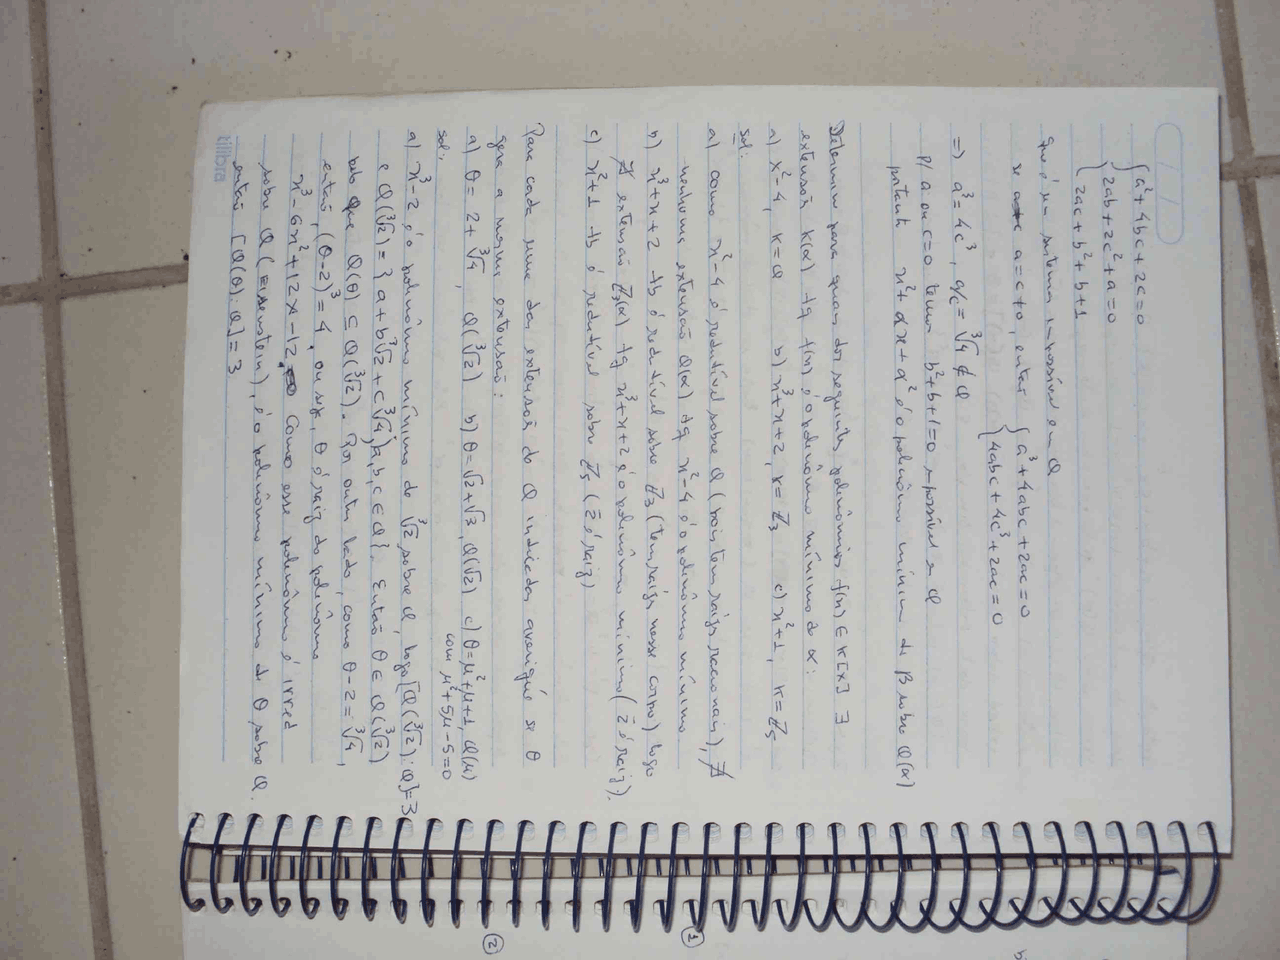 {a²+4bc+2c=0
2ab+2c²+a=0
2ac+b²+b+1
que é um sistema impossível em Q
se a=c≠0, então {a³+4abc+2ac=0
{4abc+4c³+2ac=0
=> a³=4c³, a/c=∛4 ∉ Q
p/ a ou c=0 temos b²+b+1=0 impossível em Q
portanto x²+αx+α² é o polinômio mínimo de β sobre Q(α)
Determinar para quais dos seguintes polinômios f(x) ∈ K[x] ∃
extensão K(α) tq f(x) é o polinômio mínimo de α:
a) x²-4, K=Q b) x³+x+2, K=Z₃ c) x²+1, K=Z₅
sol:
a) como x²-4 é redutível sobre Q (pois tem raízes racionais), ∄
nenhuma extensão Q(α) tq x²-4 é o polinômio mínimo
b) x³+x+2 tb é redutível sobre Z₃ (tem raízes nesse corpo) logo
∄ extensão Z₃(α) tq x³+x+2 é o polinômio mínimo (2̄ é raiz).
c) x²+1 tb é redutível sobre Z₅ (2̄ é raiz)
Para cada uma das extensões de Q indicadas averigúe se θ
gera a mesma extensão:
a) θ=2+∛4, Q(∛2) b) θ=√2+√3, Q(√2) c) θ=μ²+μ+1, Q(μ)
com μ²+5μ-5=0
sol:
a) x³-2 é o polinômio mínimo de ∛2 sobre Q, logo [Q(∛2):Q]=3
e Q(∛2)={a+b∛2+c∛4; a,b,c ∈ Q}. Então θ ∈ Q(∛2)
Q(θ) ⊆ Q(∛2). Por outro lado, como θ-2=∛4,
então, (θ-2)³=4, ou seja, θ é raiz do polinômio
x³-6x²+12x-12. Como esse polinômio é irred
sobre Q (Eisenstein), é o polinômio mínimo de θ sobre Q.
então [Q(θ):Q]=3
tilibra
1
2